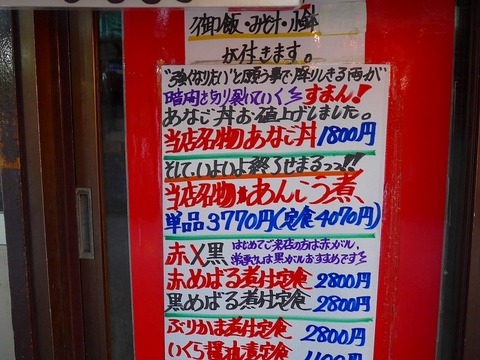 御飯・みそ汁・小鉢
が付きます。
"強くなりたい"と願う事で、降りしきる雨が
暗闇を切り裂いていく彡すまん!
あなご丼お値上げしました。
当店名物あなご丼1800円
そして、いよいよ終了せまるっっ!!
当店名物あんこう煮、
単品3770円(定食4070円)
赤X黒 はじめてご来店の方は赤メバル、
常連さんは黒メバルおすすめです彡
赤めばる煮付定食 2800円
黒めばる煮付定食 2800円
ぶりかま煮付定食 2800円
いくら醤油漬定食